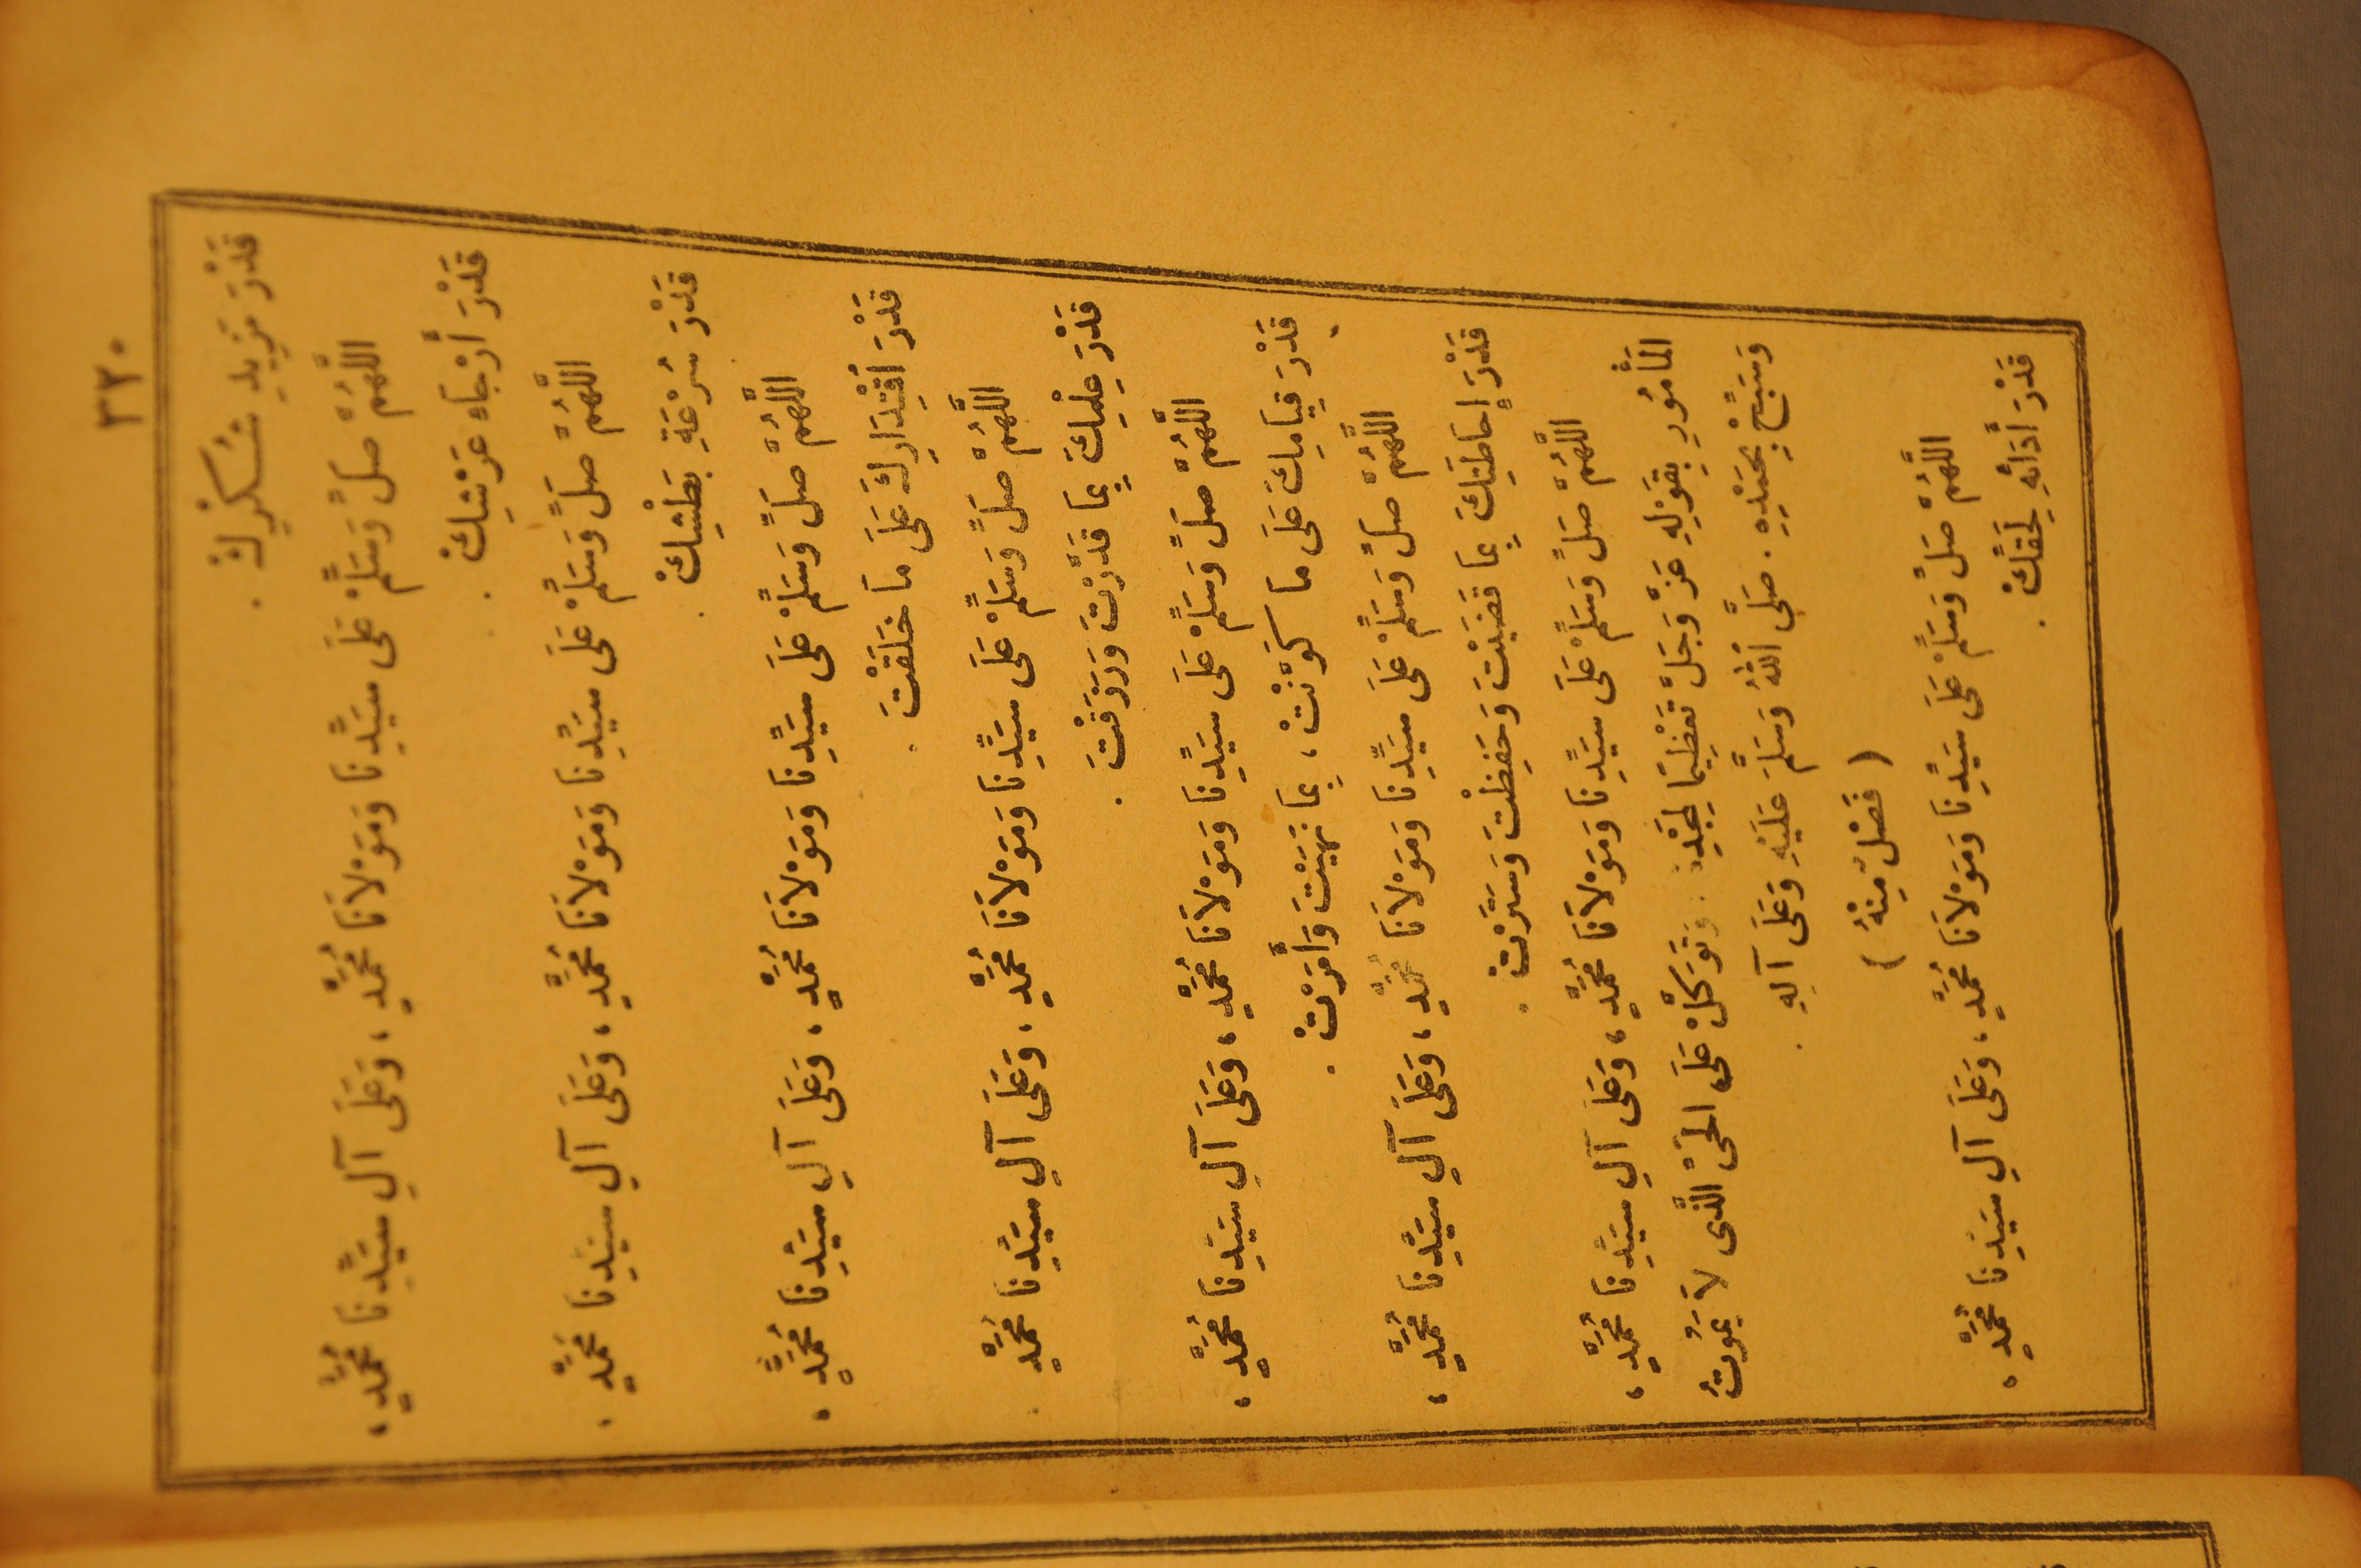 ٣٢٠
قَدْرَ مَزِيدِ شُكْرِكَ .
اللَّهُمَّ صَلِّ وَسَلِّمْ عَلَى سَيِّدِنَا وَمَوْلَانَا مُحَمَّدٍ ، وَعَلَى آلِ سَيِّدِنَا مُحَمَّدٍ ،
قَدْرَ أَرْجَاءِ عَرْشِكَ .
اللَّهُمَّ صَلِّ وَسَلِّمْ عَلَى سَيِّدِنَا وَمَوْلَانَا مُحَمَّدٍ ، وَعَلَى آلِ سَيِّدِنَا مُحَمَّدٍ ،
قَدْرَ سُرْعَةِ بَطْشِكَ .
اللَّهُمَّ صَلِّ وَسَلِّمْ عَلَى سَيِّدِنَا وَمَوْلَانَا مُحَمَّدٍ ، وَعَلَى آلِ سَيِّدِنَا مُحَمَّدٍ ،
قَدْرَ اقْتِدَارِكَ عَلَى مَا خَلَقْتَ .
اللَّهُمَّ صَلِّ وَسَلِّمْ عَلَى سَيِّدِنَا وَمَوْلَانَا مُحَمَّدٍ ، وَعَلَى آلِ سَيِّدِنَا مُحَمَّدٍ .
قَدْرَ عِلْمِكَ بِمَا قَدَّرْتَ وَرَزَقْتَ .
اللَّهُمَّ صَلِّ وَسَلِّمْ عَلَى سَيِّدِنَا وَمَوْلَانَا مُحَمَّدٍ ، وَعَلَى آلِ سَيِّدِنَا مُحَمَّدٍ ،
قَدْرَ قِيَامِكَ عَلَى مَا كَوَّنْتَ ، بِمَا نَهَيْتَ وَأَمَرْتَ .
اللَّهُمَّ صَلِّ وَسَلِّمْ عَلَى سَيِّدِنَا وَمَوْلَانَا مُحَمَّدٍ ، وَعَلَى آلِ سَيِّدِنَا مُحَمَّدٍ ،
قَدْرَ إِحَاطَتِكَ بِمَا قَضَيْتَ وَحَفِظْتَ وَسَتَرْتَ .
اللَّهُمَّ صَلِّ وَسَلِّمْ عَلَى سَيِّدِنَا وَمَوْلَانَا مُحَمَّدٍ ، وَعَلَى آلِ سَيِّدِنَا مُحَمَّدٍ ،
الْمَأْمُورِ بِقَوْلِهِ عَزَّ وَجَلَّ تَعْظِيمًا لِمَجْدِهِ : وَتَوَكَّلْ عَلَى الْحَيِّ الَّذِى لَا يَمُوتُ
وَسَبِّحْ بِحَمْدِهِ . صَلَّى اللهُ وَسَلَّمَ عَلَيْهِ وَعَلَى آلِهِ .
( فَصْلٌ مِنْهُ )
اللَّهُمَّ صَلِّ وَسَلِّمْ عَلَى سَيِّدِنَا وَمَوْلَانَا مُحَمَّدٍ ، وَعَلَى آلِ سَيِّدِنَا مُحَمَّدٍ ،
قَدْرَ أَدَائِهِ لِحَقِّكَ .